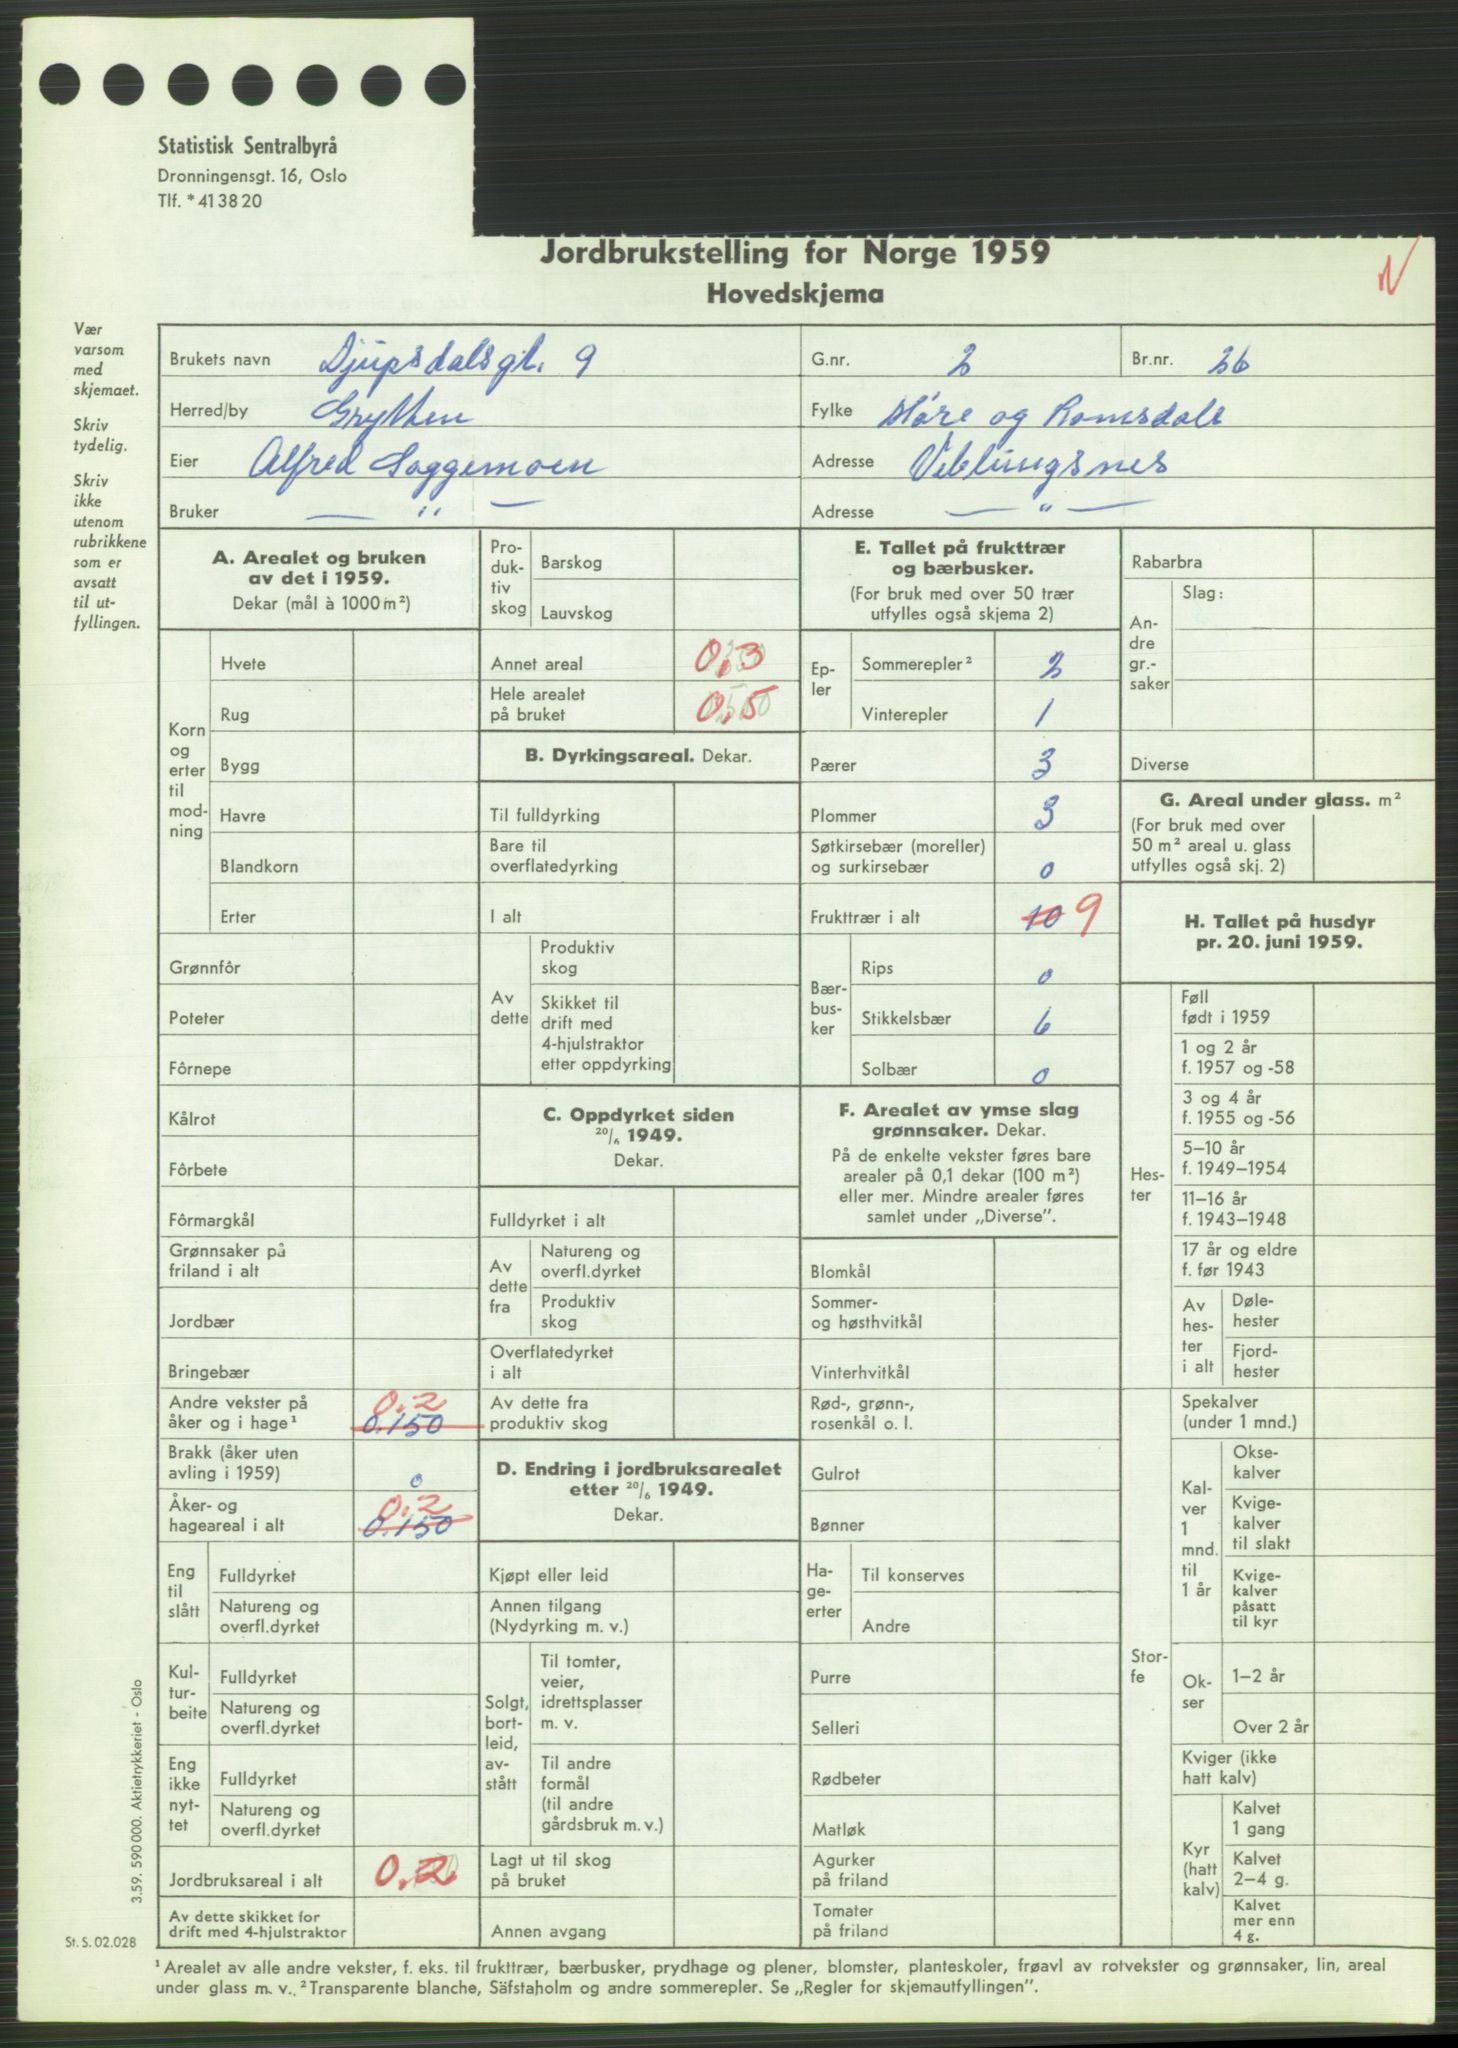 Statistisk Sentralbyrå
Dronningensgt. 16, Oslo
Tlf. *41 38 20
Jordbrukstelling for Norge 1959
Hovedskjema
N
Vær
varsom
med
skjemaet.
Skriv
tydelig.
Skriv
ikke
utenom
rubrikkene
som er
avsatt
til ut-
fyllingen.
Brukets navn Djupsdalsgt. 9 G.nr. 2 Br.nr. 26
Herred/by Grytten Fylke Møre og Romsdal
Eier Alfred Soggemoen Adresse Veblungsnes
Bruker — " — Adresse — " —
A. Arealet og bruken
av det i 1959.
Dekar (mål à 1000 m²)
Korn
og
erter
til
mod-
ning
Hvete
Rug
Bygg
Havre
Blandkorn
Erter
Grønnfôr
Poteter
Fôrnepe
Kålrot
Fôrbete
Fôrmargkål
Grønnsaker på
friland i alt
Jordbær
Bringebær
Andre vekster på 0.2
åker og i hage¹ 0.150
Brakk (åker uten
avling i 1959) 0
Åker- og 0.2
hageareal i alt 0.150
Eng
til
slått
Fulldyrket
Natureng og
overfl.dyrket
Kul-
tur-
beite
Fulldyrket
Natureng og
overfl.dyrket
Eng
ikke
nyt-
tet
Fulldyrket
Natureng og
overfl.dyrket
Jordbruksareal i alt 0.2
Av dette skikket for
drift med 4-hjulstraktor
Pro-
duk-
tiv
skog
Barskog
Lauvskog
Annet areal 0,3
Hele arealet
på bruket 0,5
B. Dyrkingsareal. Dekar.
Til fulldyrking
Bare til
overflatedyrking
I alt
Av
dette
Produktiv
skog
Skikket til
drift med
4-hjulstraktor
etter oppdyrking
C. Oppdyrket siden
20/6 1949.
Dekar.
Fulldyrket i alt
Av
dette
fra
Natureng og
overfl.dyrket
Produktiv
skog
Overflatedyrket
i alt
Av dette fra
produktiv skog
D. Endring i jordbruksarealet
etter 20/6 1949.
Dekar.
Kjøpt eller leid
Annen tilgang
(Nydyrking m. v.)
Solgt,
bort-
leid,
av-
stått
Til tomter,
veier,
idrettsplasser
m. v.
Til andre
formål
(til andre
gårdsbruk m. v.)
Lagt ut til skog
på bruket
Annen avgang
E. Tallet på frukttrær
og bærbusker.
(For bruk med over 50 trær
utfylles også skjema 2)
Ep-
ler
Sommerepler² 2
Vinterepler 1
Pærer 3
Plommer 3
Søtkirsebær (moreller)
og surkirsebær 0
Frukttrær i alt 10 9
Bær-
bus-
ker
Rips 0
Stikkelsbær 6
Solbær 0
F. Arealet av ymse slag
grønnsaker. Dekar.
På de enkelte vekster føres bare
arealer på 0,1 dekar (100 m²)
eller mer. Mindre arealer føres
samlet under „Diverse”.
Blomkål
Sommer-
og høsthvitkål
Vinterhvitkål
Rød-, grønn-,
rosenkål o. l.
Gulrot
Bønner
Ha-
ge-
erter
Til konserves
Andre
Purre
Selleri
Rødbeter
Matløk
Agurker
på friland
Tomater
på friland
Rabarbra
An-
dre
gr.-
saker
Slag:
Diverse
G. Areal under glass. m²
(For bruk med over
50 m² areal u. glass
utfylles også skj. 2)
H. Tallet på husdyr
pr. 20. juni 1959.
Hes-
ter
Føll
født i 1959
1 og 2 år
f. 1957 og -58
3 og 4 år
f. 1955 og -56
5–10 år
f. 1949–1954
11–16 år
f. 1943–1948
17 år og eldre
f. før 1943
Av
hes-
ter
i alt
Døle-
hester
Fjord-
hester
Stor-
fe
Spekalver
(under 1 mnd.)
Kal-
ver
1
mnd.
til
1 år
Okse-
kalver
Kvige-
kalver
til slakt
Kvige-
kalver
påsatt
til kyr
Ok-
ser
1–2 år
Over 2 år
Kviger (ikke
hatt kalv)
Kyr
(hatt
kalv)
Kalvet
1 gang
Kalvet
2–4 g.
Kalvet
mer enn
4 g.
3.59. 590 000. Aktietrykkeriet - Oslo
St. S. 02.028
¹ Arealet av alle andre vekster, f. eks. til frukttrær, bærbusker, prydhage og plener, blomster, planteskoler, frøavl av rotvekster og grønnsaker, lin, areal
under glass m. v.. ² Transparente blanche, Säfstaholm og andre sommerepler. Se „Regler for skjemautfyllingen”.